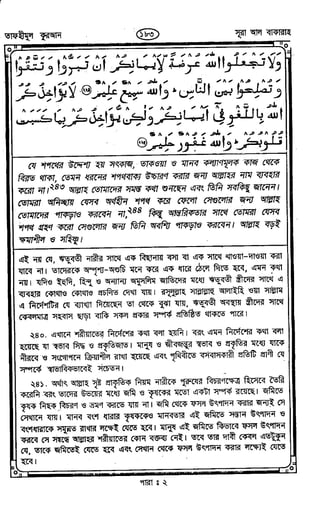 তাফহীমুল কুরআন
১৮৩
সূরা আল বাকারাহ
وَلَا تَجْعَلُوا اللَّهَ عُرْضَةً لِّأَيْمَانِكُمْ أَن تَبَرُّوا وَتَتَّقُوا
وَتُصْلِحُوا بَيْنَ النَّاسِ وَاللَّهُ سَمِيعٌ عَلِيمٌ لَّا يُؤَاخِذُكُمُ
اللَّهُ بِاللَّغْوِ فِي أَيْمَانِكُمْ وَلَٰكِن يُؤَاخِذُكُم بِمَا كَسَبَتْ
قُلُوبُكُمْ وَاللَّهُ غَفُورٌ حَلِيمٌ
যে শপথের উদ্দেশ্য হয় সৎকাজ, তাকওয়া ও মানব কল্যাণমূলক কাজ থেকে
বিরত থাকা, তেমন ধরনের শপথবাক্য উচ্চারণ করার জন্য আল্লাহর নাম ব্যবহার
করো না।২৪৩ আল্লাহ তোমাদের সমস্ত কথা শুনছেন এবং তিনি সবকিছু জানেন।
তোমরা অনিচ্ছায় যেসব অর্থহীন শপথ করে ফেলো সেগুলোর জন্য আল্লাহ
তোমাদের পাকড়াও করবেন না,২৪৪ কিন্তু আন্তরিকতার সাথে তোমরা যেসব
শপথ গ্রহণ করো সেগুলোর জন্য তিনি অবশ্যি পাকড়াও করবেন। আল্লাহ বড়ই
ক্ষমাশীল ও সহিষ্ণু।
এই নয় যে, ঋতুবতী নারীর সাথে এক বিছানায় বসা বা এক সাথে খাওয়া-দাওয়া করা
যাবে না। তাদেরকে অস্পৃশ্য-অশুচি মনে করে এক ধারে ঠেলে দিতে হবে, এমন কথা
নয়। যদিও ইহুদি, হিন্দু ও অন্যান্য অমুসলিম জাতিদের মধ্যে ঋতুবতী স্ত্রীদের সাথে এ
ব্যবহার কোথাও কোথাও প্রচলিত দেখা যায়। রসূলুল্লাহ সাল্লাল্লাহু আলাইহি ওয়া সাল্লাম
এ নির্দেশটির যে ব্যাখ্যা দিয়েছেন তা থেকে বুঝা যায়, ঋতুবতী অবস্থায় স্ত্রীদের সাথে
কেবলমাত্র সহবাস ছাড়া বাকি সকল প্রকার সম্পর্ক প্রতিষ্ঠিত থাকতে পারে।
২৪০. এখানে শরীয়াতের নির্দেশের কথা বলা হয়নি। বরং এমন নির্দেশের কথা বলা
হয়েছে যা স্বভাব সিদ্ধ ও প্রকৃতিজাত। মানুষ ও জীবজন্তুর স্বভাব ও প্রকৃতির মধ্যে যাকে
নীরবে ও সংগোপনে ক্রিয়াশীল রাখা হয়েছে এবং পৃথিবীতে বসবাসকারী প্রতিটি প্রাণী যে
সম্পর্কে স্বাভাবিকভাবেই সচেতন।
২৪১. অর্থাৎ আল্লাহ সৃষ্ট প্রাকৃতিক নিয়ম নারীকে পুরুষের বিচরণক্ষেত্র হিসেবে তৈরি
করেনি বরং তাদের উভয়ের মধ্যে জমি ও কৃষকের মতো একটা সম্পর্ক রয়েছে। জমিতে
কৃষক নিছক বিচরণ ও ভ্রমণ করতে যায় না। জমি থেকে ফসল উৎপাদন করার জন্যই সে
সেখানে যায়। মানব বংশ ধারার কৃষককেও মানবতার এই জমিতে সন্তান উৎপাদন ও
বংশধারাকে সমুন্নত রাখার লক্ষেই যেতে হবে। মানুষ এই জমিতে কিভাবে ফসল উৎপাদন
করবে সে সম্বন্ধে আল্লাহর শরীয়াতের কোন বক্তব্য নেই। তবে তার দাবী কেবল এতটুকুন
যে, তাকে জমিতেই যেতে হবে এবং সেখান থেকে ফসল উৎপাদন করার লক্ষেই যেতে
হবে।
পারা : ২